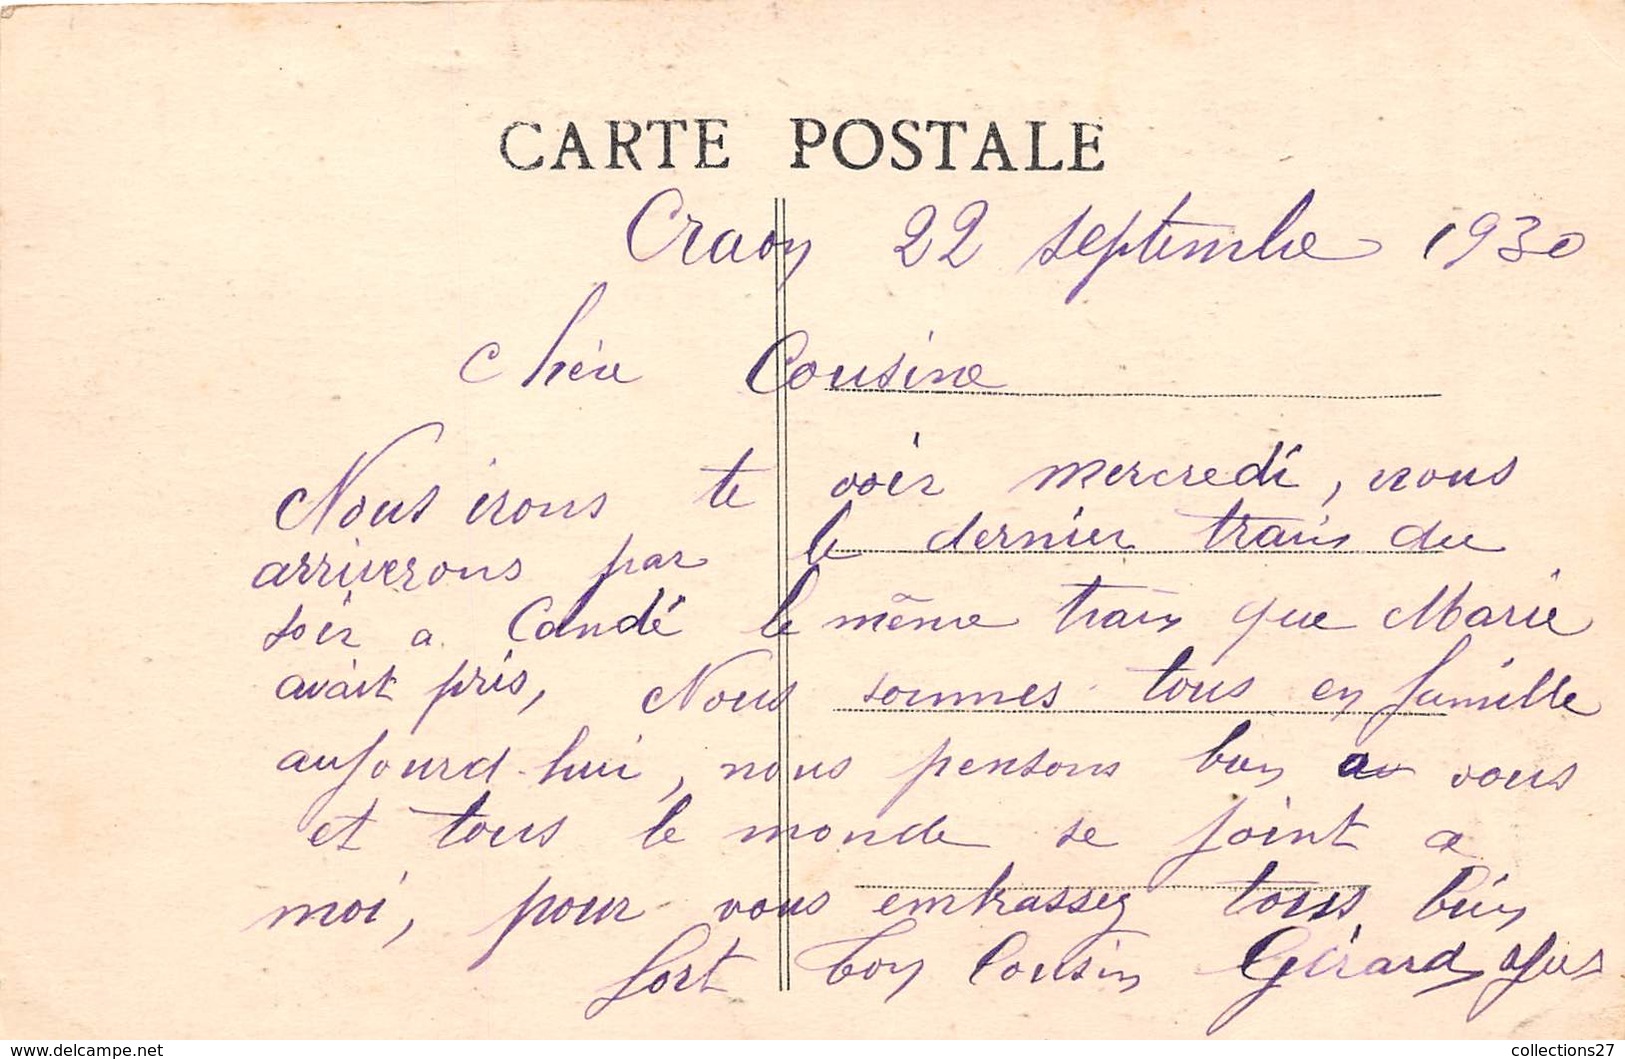 CARTE POSTALE
Craon 22 septembre 1930
Chère Cousine
Nous irons te voir mercredi, nous
arriverons par le dernier train du
soir a Candé le même train que Marie
avait pris, Nous sommes tous en famille
aujourd'hui, nous pensons bien a vous
et tous le monde se joint a
moi, pour vous embrasser tous bien
fort ton Cousin Gérard
www.delcampe.net
collections27